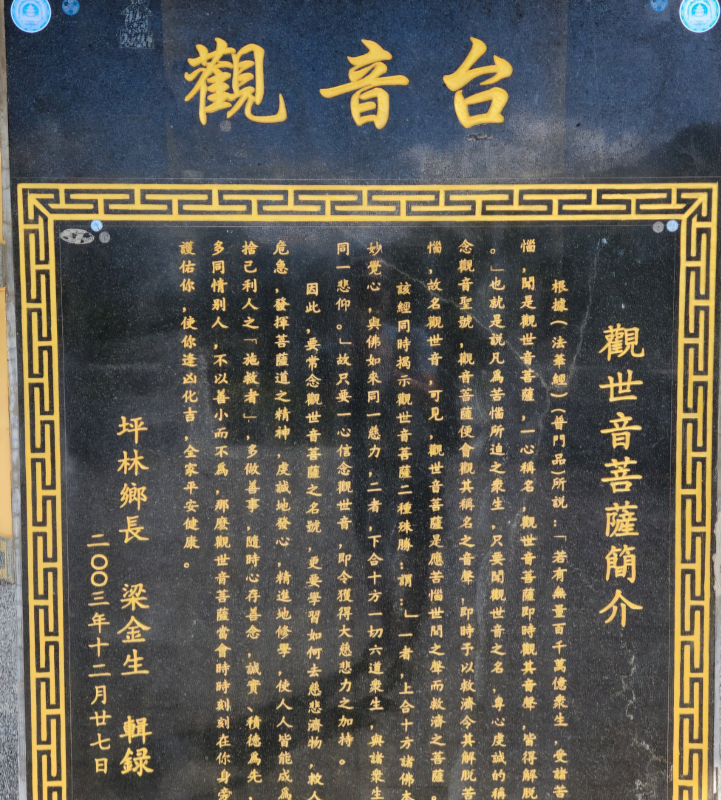 觀音台
觀世音菩薩簡介
根據(法華經)(普門品)所說:「若有無量百千萬億衆生,受諸苦
惱,聞是觀世音菩薩,一心稱名,觀世音菩薩即時觀其音聲,皆得解脫
。」也就是說凡為苦惱所迫之衆生,只要聞觀世音之名,專心虔誠的稱
念觀音聖號,觀音菩薩便會觀其稱名之音聲,即時予以救濟令其解脫苦
惱,故名觀世音,可見,觀世音菩薩是應苦惱世間之聲而救濟之菩薩。
該經同時揭示觀世音菩薩二種殊勝;謂:」一者,上合十方諸佛本
妙覺心,與佛如來同一慈力,二者,下合十方一切六道衆生,與諸衆生
同一悲仰。」故只要一心信念觀世音,即令獲得大慈悲力之加持。
因此,要常念觀世音菩薩之名號,更要學習如何去慈悲濟物,救人
危急,發揮菩薩道之精神,虔誠地發心,精進地修學,使人人皆能成為
捨己利人之「施救者」,多做善事,隨時心存善念,誠實、積德為先,
多同情別人,不以善小而不為,那麼觀世音菩薩當會時時刻刻在你身旁
護佑你,使你逢凶化吉,全家平安健康。
坪林鄉長 梁金生 輯録
二〇〇三年十二月廿七日